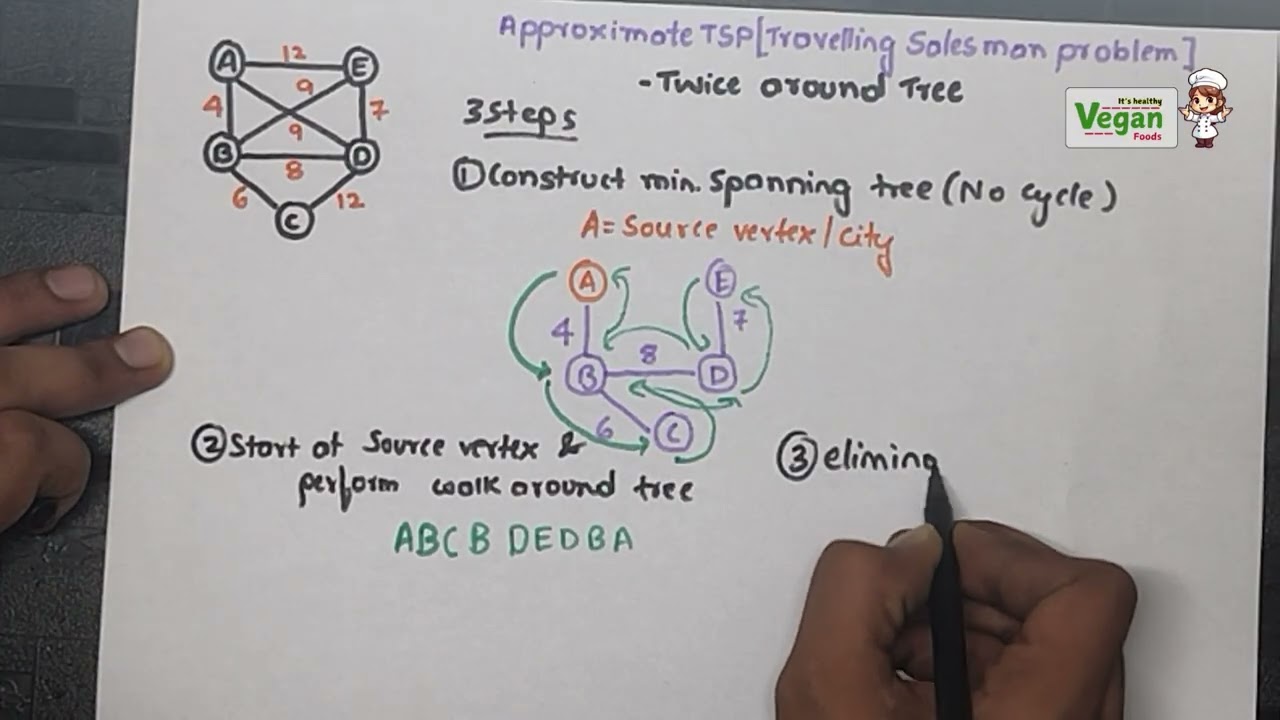 Approximate TSP [Travelling Salesman problem]
- Twice around Tree
It's healthy
Vegan
Foods
A 12 E
4 9 7
9
B 8 D
6 12
C
3 Steps
① Construct min. spanning tree (No cycle)
A = Source vertex / city
A E
4 7
B 8 D
6 C
② Start at Source vertex &
perform walk around tree
ABCB DEDBA
③ elimina